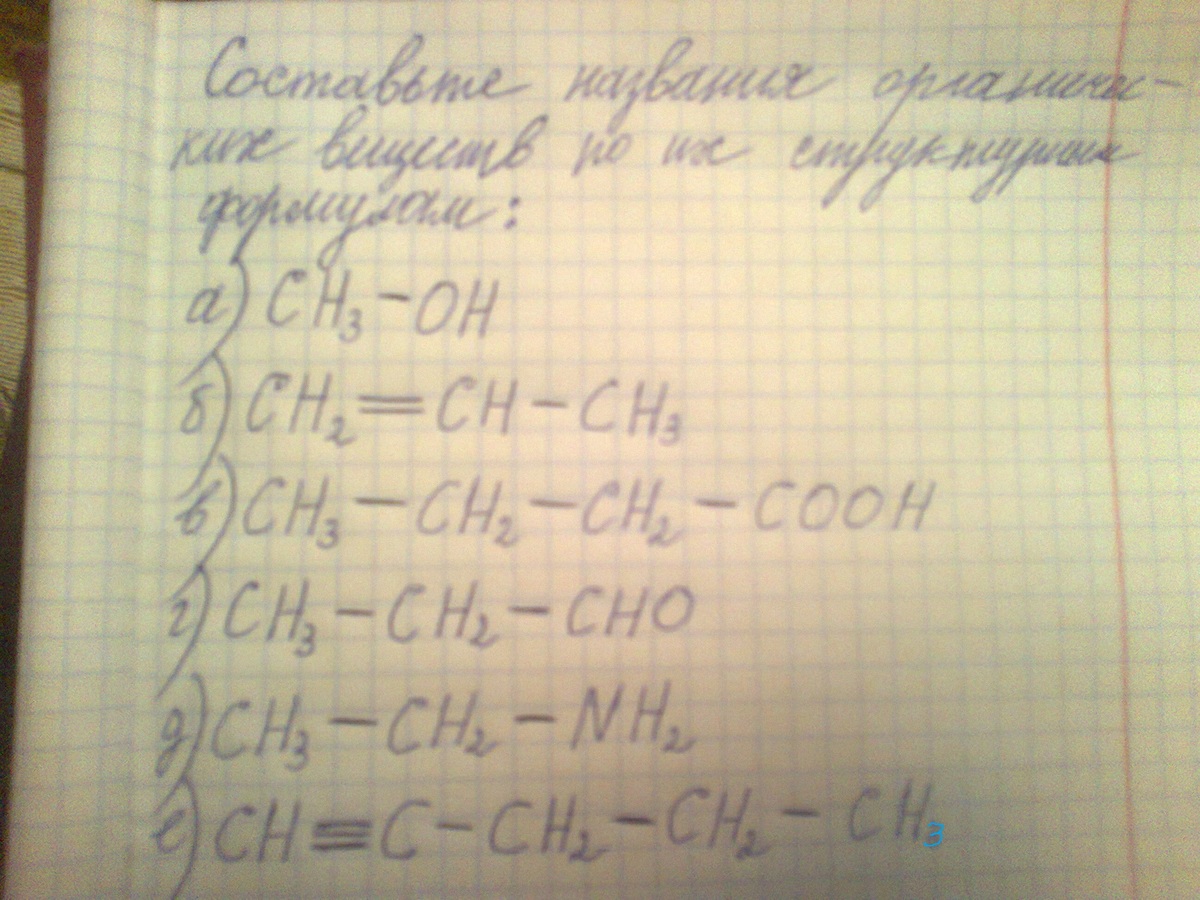 Составьте названия органичес-
ких веществ по их структурным
формулам:
а) CH₃–OH
б) CH₂=CH–CH₃
в) CH₃–CH₂–CH₂–COOH
г) CH₃–CH₂–CHO
д) CH₃–CH₂–NH₂
е) CH≡C–CH₂–CH₂–CH₃